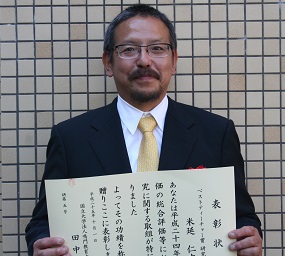 表彰状
ベストティーチャー賞
米延 仁
あなたは平成二十四年
価の総合評価等に
究に関する取組が特
りました
よってその功績を称
贈りここに表彰し
平成二十五年
国立大学法人鳴門教育
田中